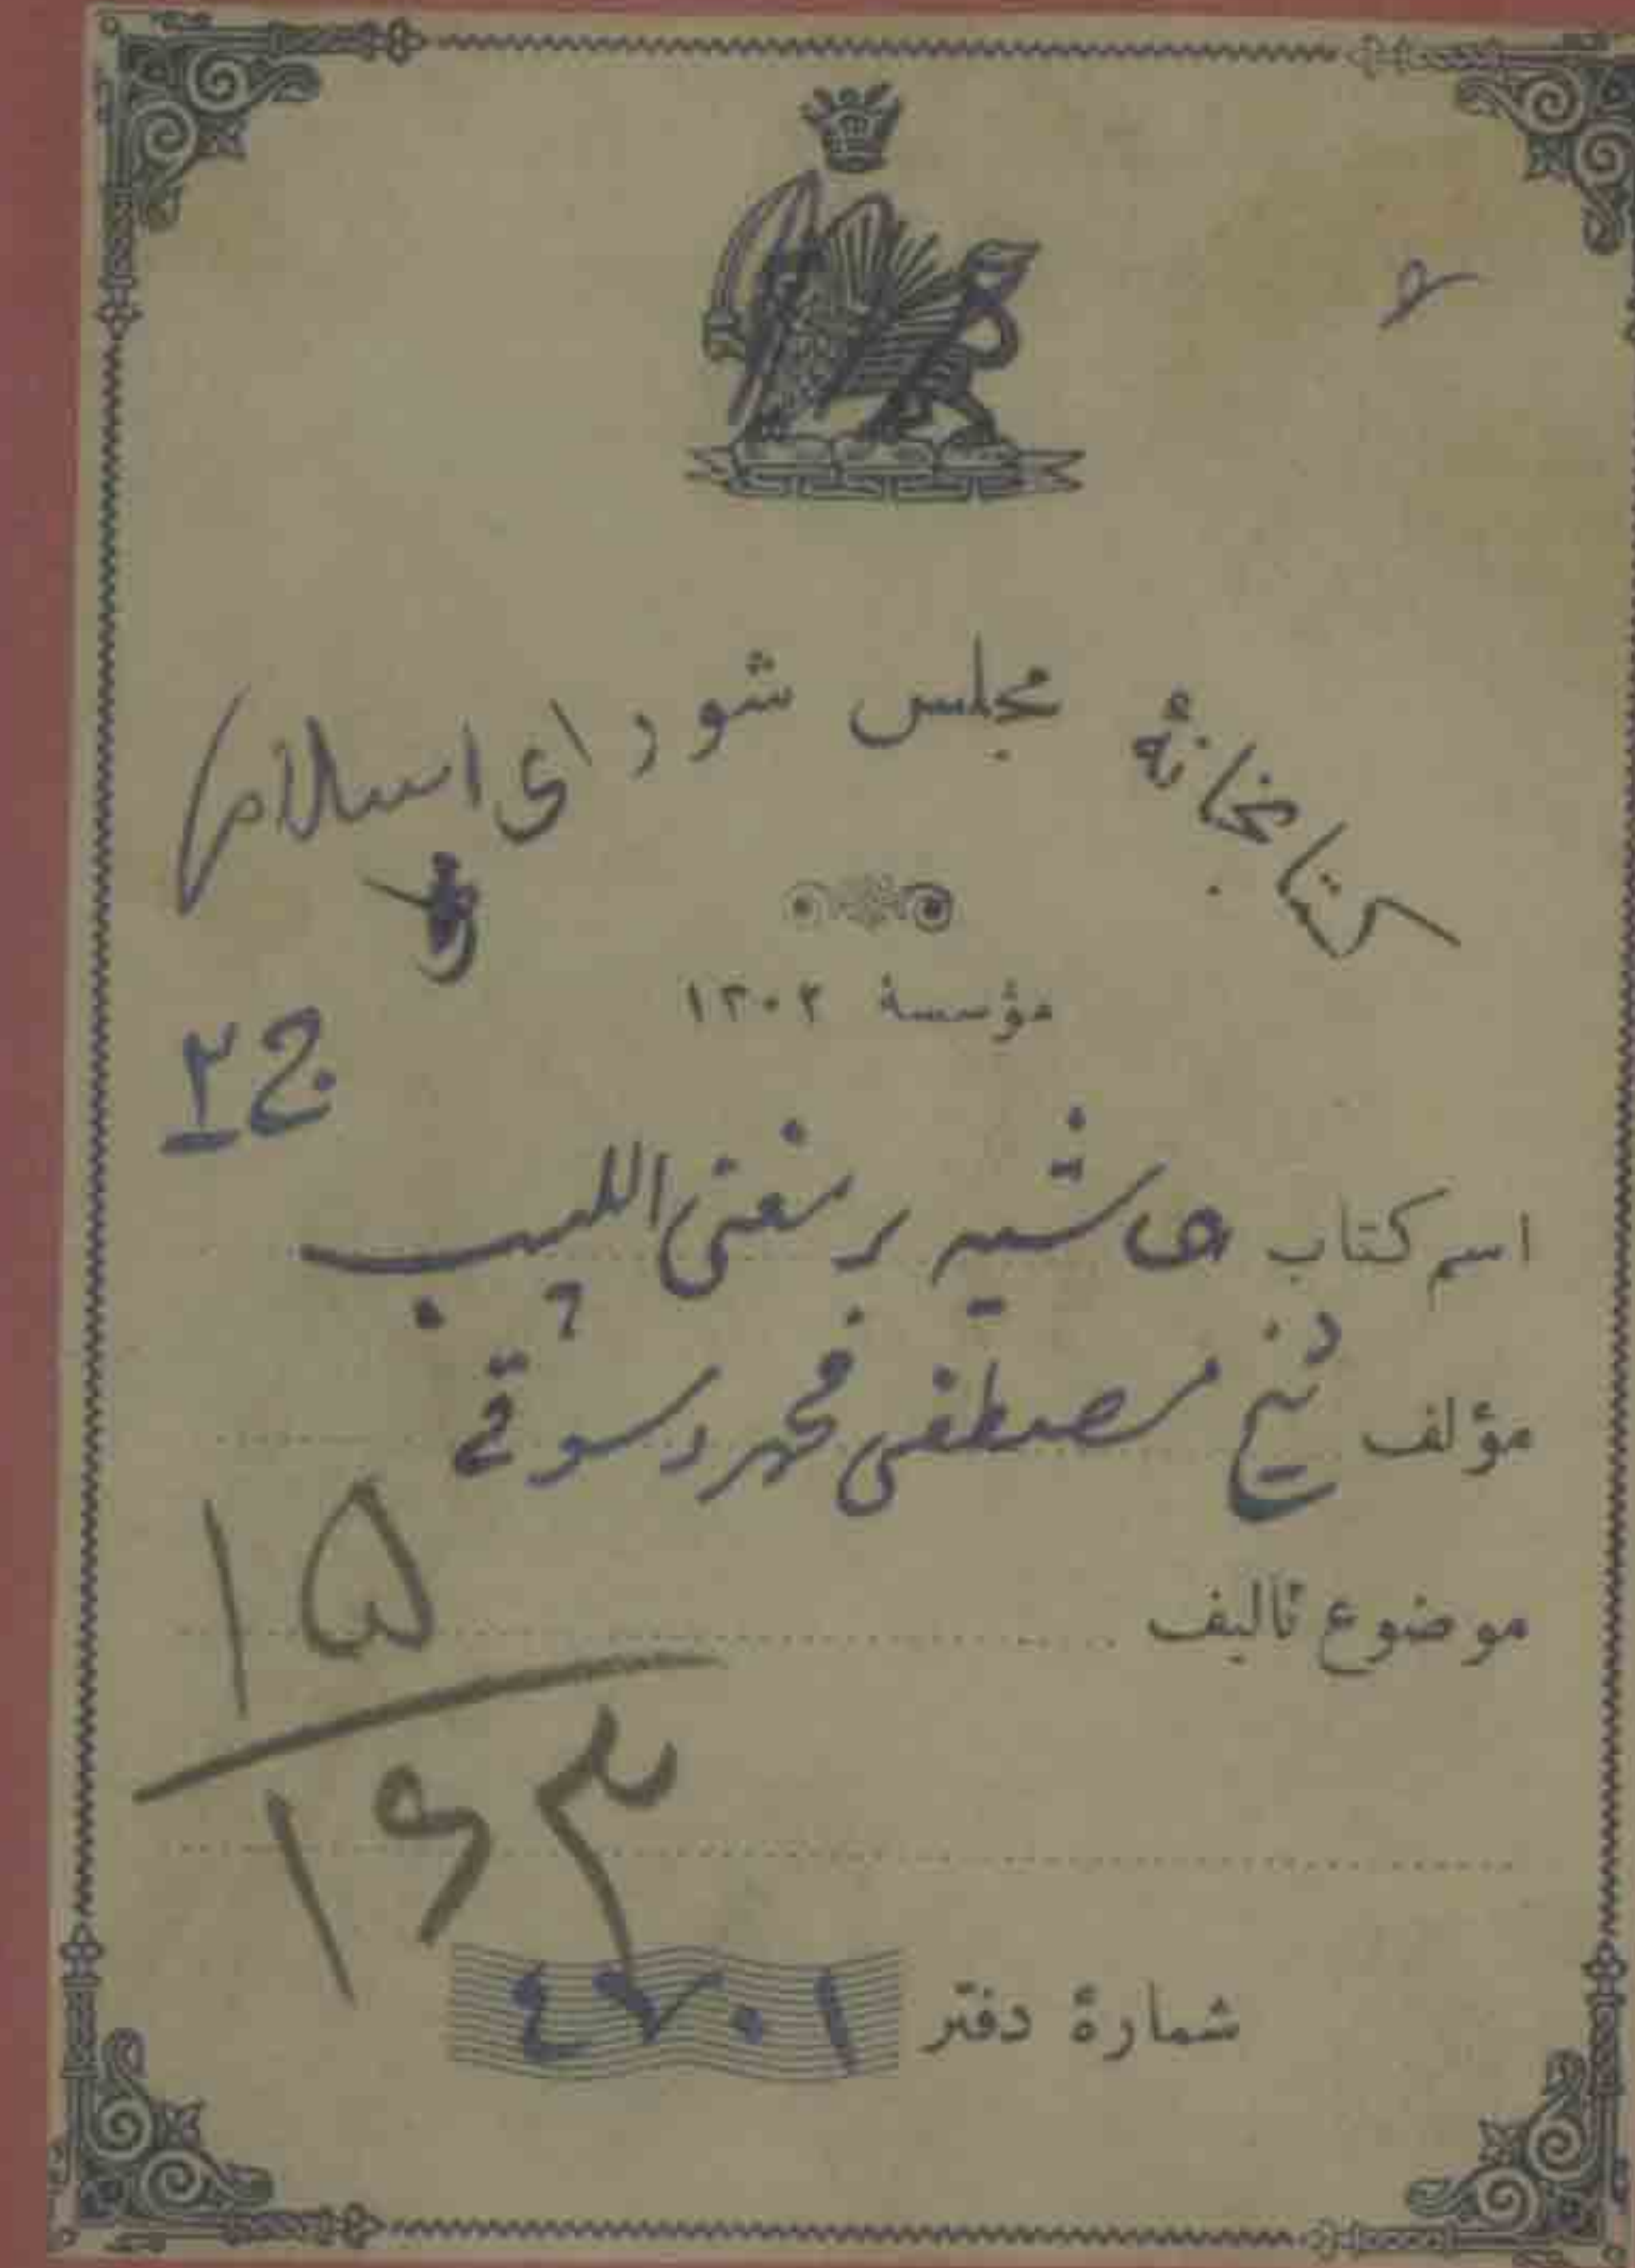 کتابخانهٔ مجلس شورای اسلامی
مؤسسهٔ ۱۳۰۲
ج ۲
اسم کتاب حاشیه بر مغنی اللبیب
مؤلف شیخ مصطفی محمد دسوقی
موضوع تألیف
۱۵
۱۶۳
شمارهٔ دفتر ٤٧٠١